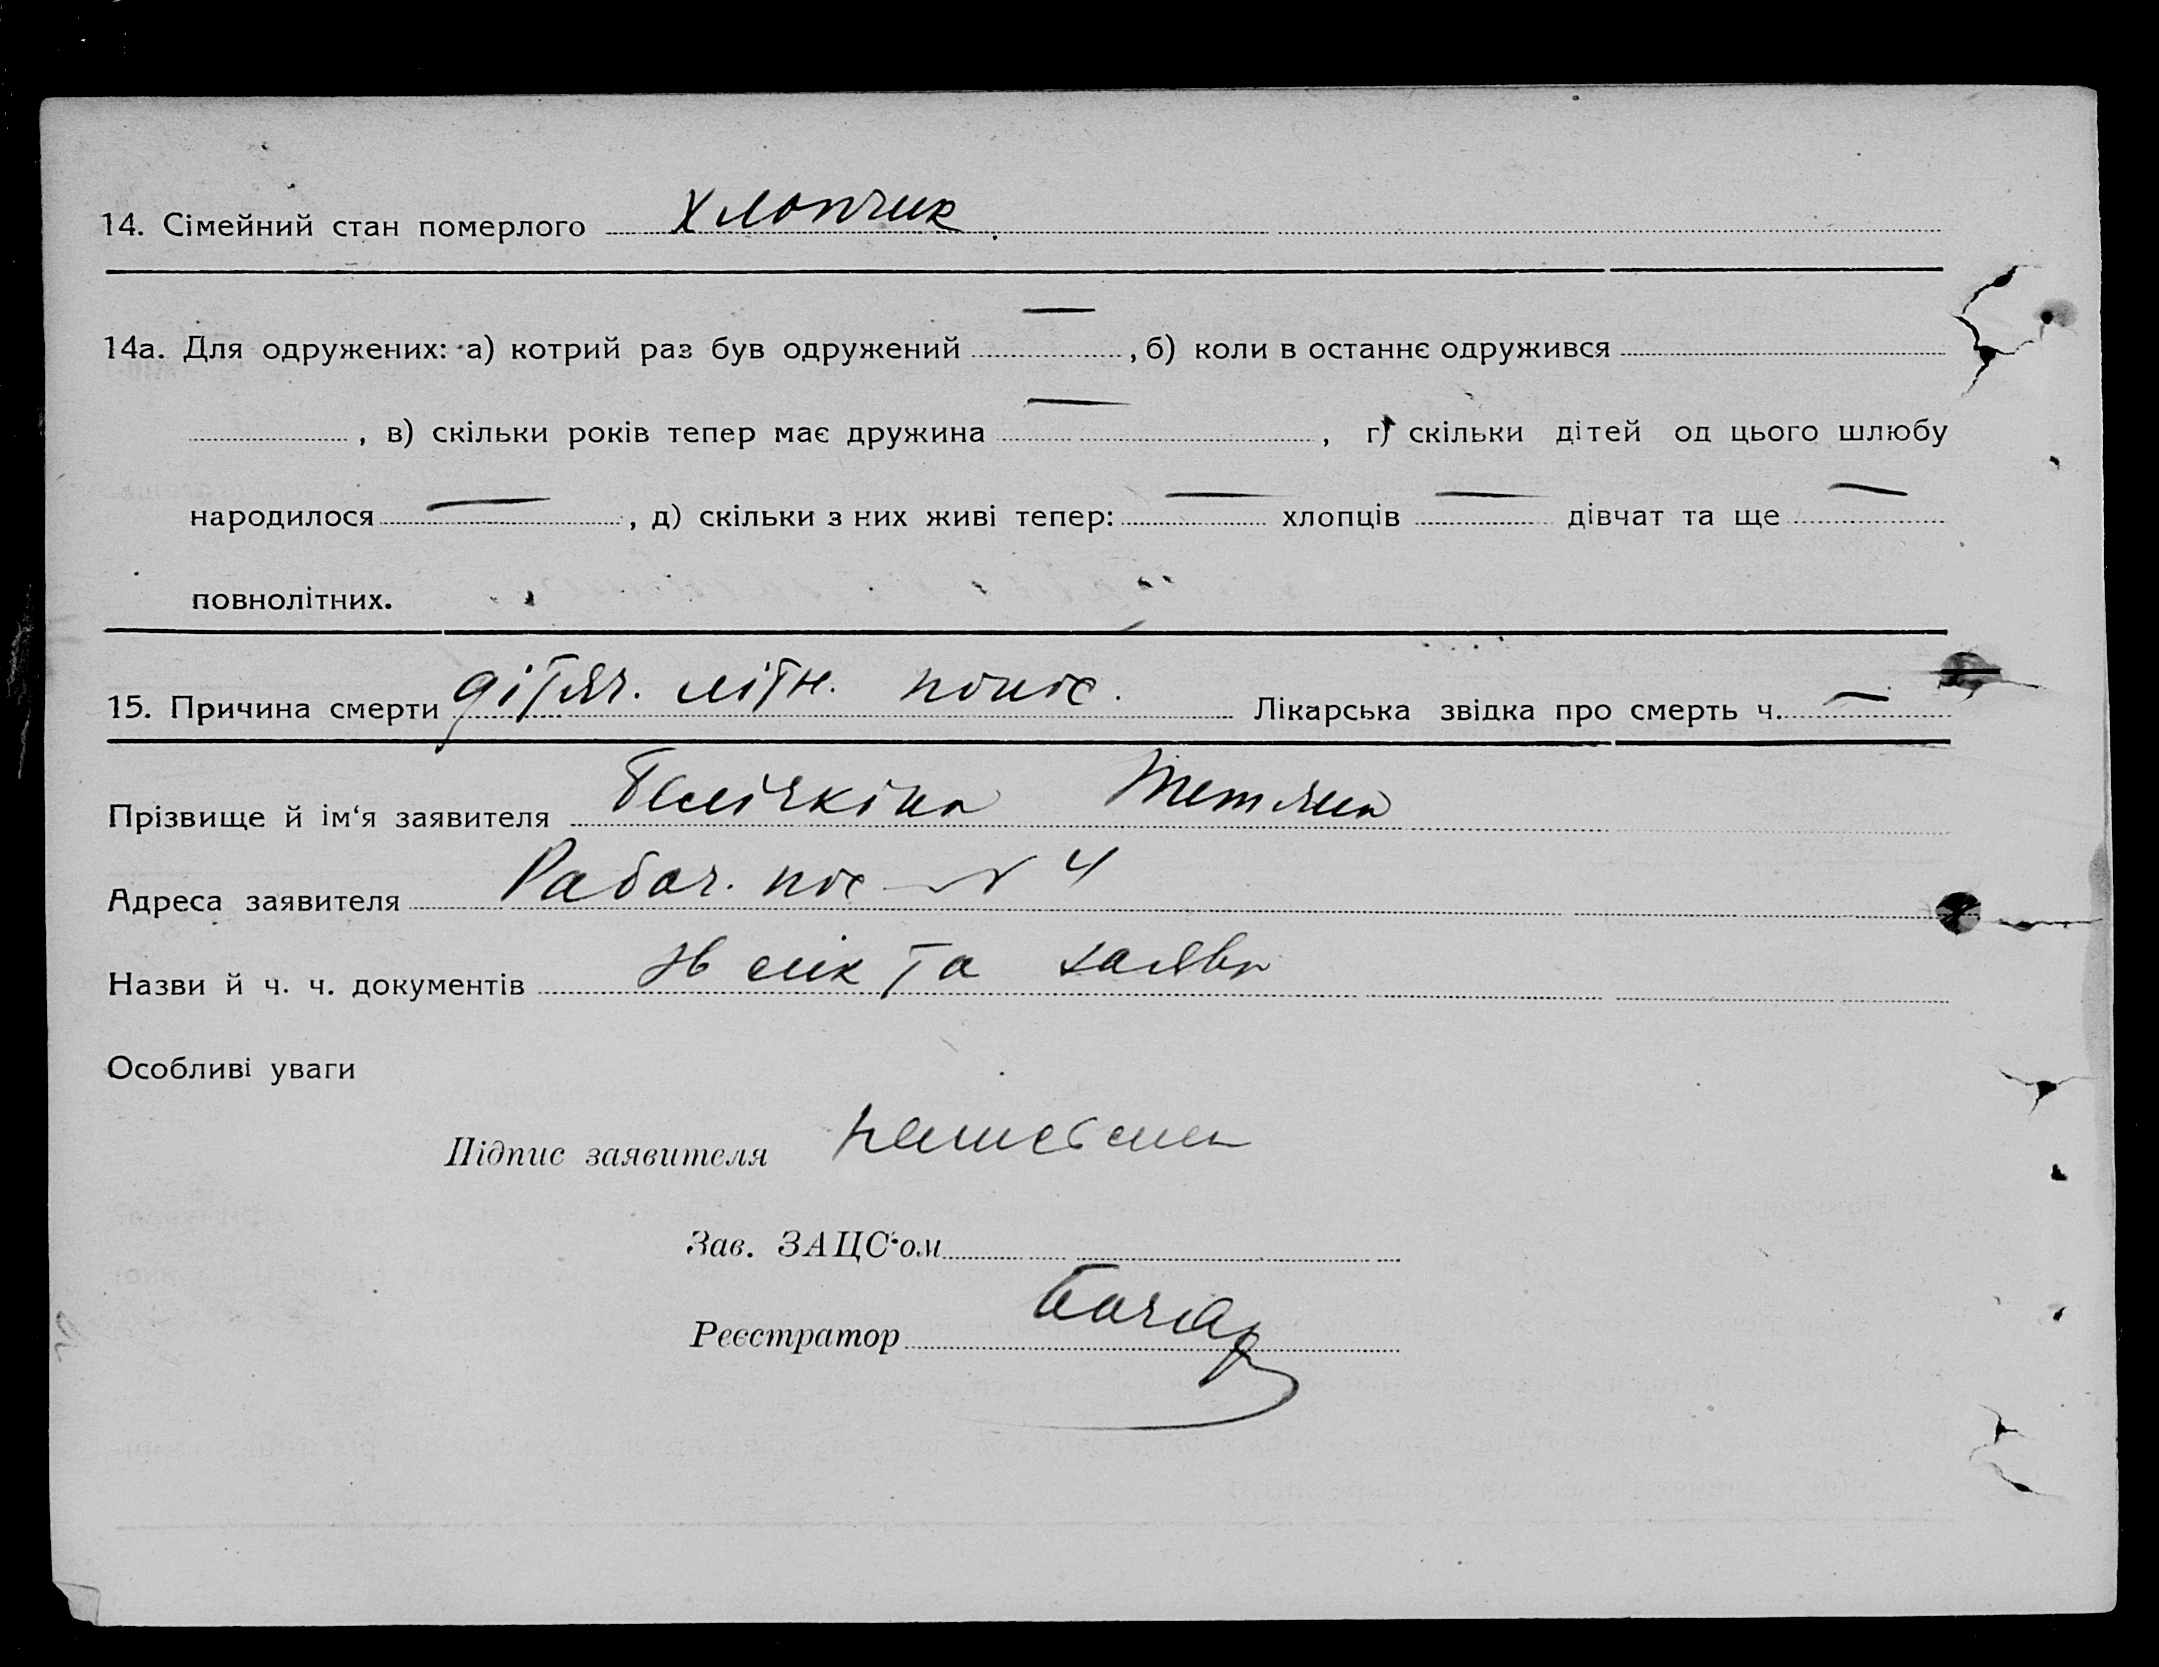 14. Сімейний стан померлого Хлопчик
14а. Для одружених: а) котрий раз був одружений —, б) коли в останнє одружився
, в) скільки років тепер має дружина —, г) скільки дітей од цього шлюбу
народилося —, д) скільки з них живі тепер: — хлопців — дівчат та ще —
повнолітних.
15. Причина смерти дітяч. літн. понос. Лікарська звідка про смерть ч. —
Прізвище й ім‘я заявителя Тетяна
Адреса заявителя Рабоч. пос № 4
Назви й ч. ч. документів та заява
Особливі уваги
Підпис заявителя
Зав. ЗАЦС‘ом
Реєстратор